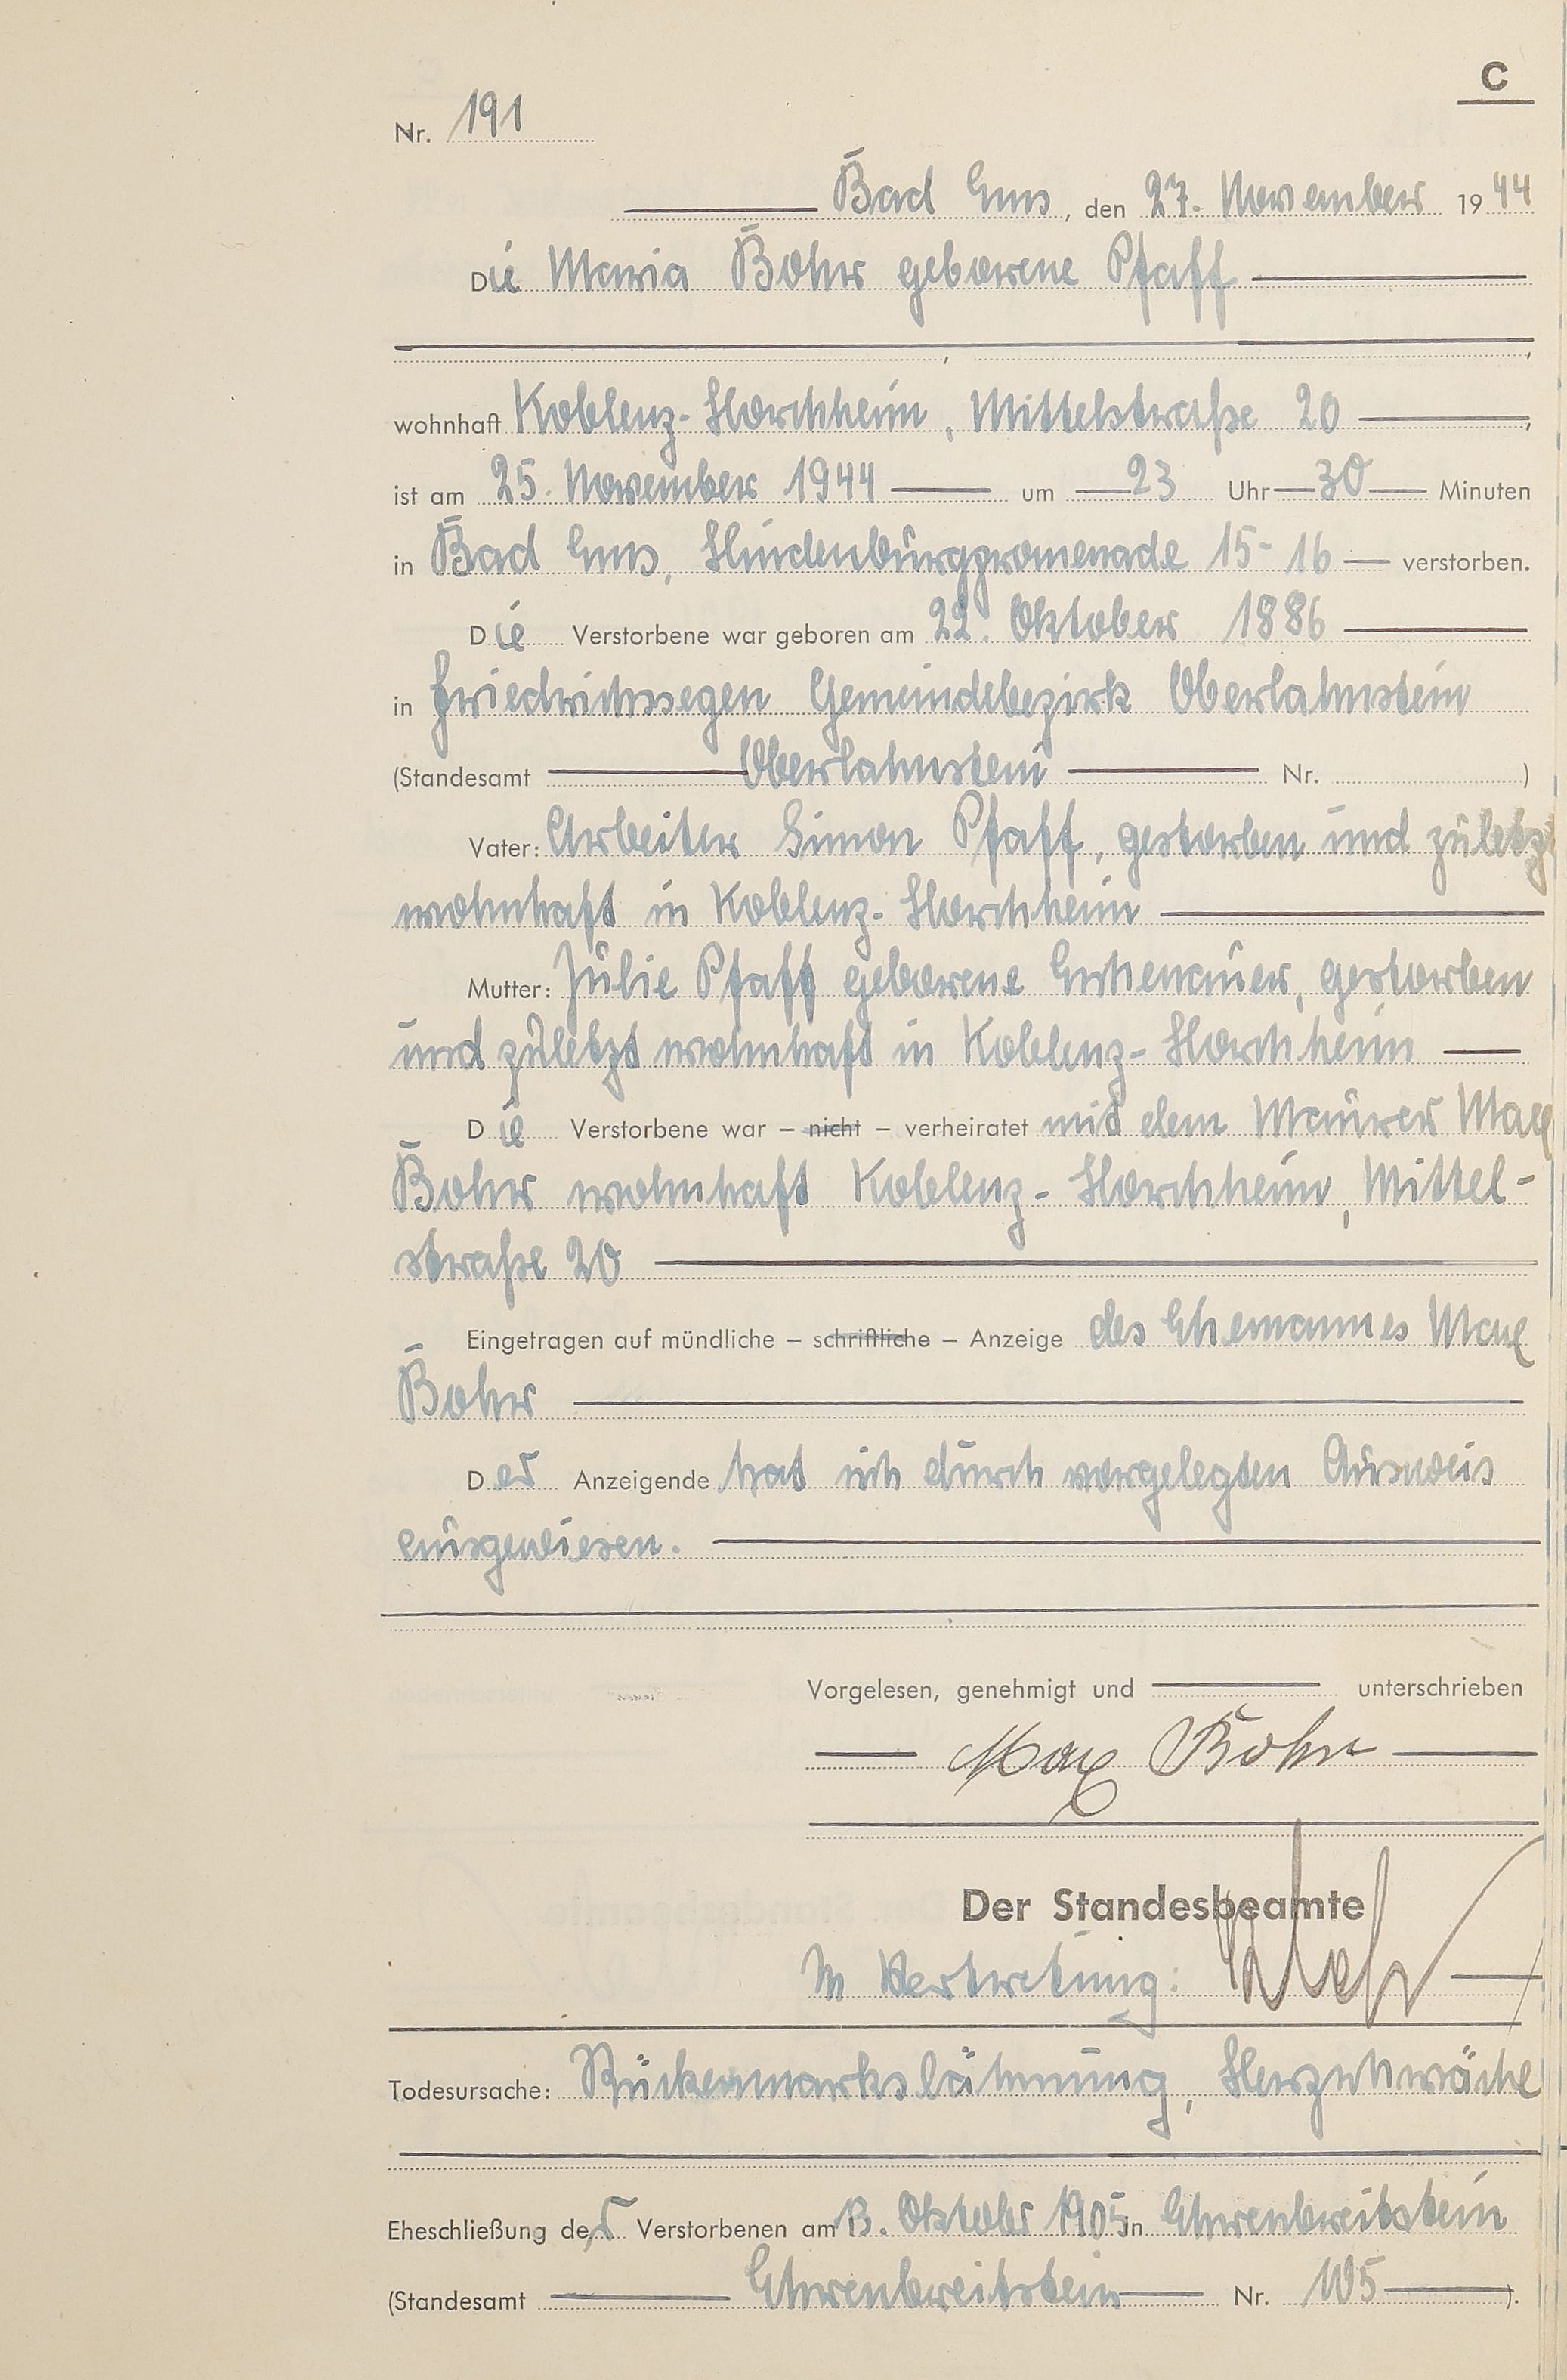 C
Nr. 191
Bad Ems, den 27. November 1944
Die Maria Bohr geborene Pfaff
wohnhaft Koblenz-Horchheim, Mittelstraße 20
ist am 25. November 1944 um 23 Uhr 30 Minuten
in Bad Ems, Hindenburgpromenade 15-16 verstorben.
Die Verstorbene war geboren am 22. Oktober 1886
in Friedrichssegen Gemeindebezirk Oberlahnstein
(Standesamt Oberlahnstein Nr. )
Vater: Arbeiter Simon Pfaff, gestorben und zuletzt
wohnhaft in Koblenz-Horchheim
Mutter: Julie Pfaff geborene Eschenauer, gestorben
und zuletzt wohnhaft in Koblenz-Horchheim
Die Verstorbene war – nicht – verheiratet mit dem Maurer Max
Bohr wohnhaft Koblenz-Horchheim, Mittel-
straße 20
Eingetragen auf mündliche – schriftliche – Anzeige des Ehemannes Max
Bohr
Der Anzeigende hat sich durch vorgelegten Ausweis
ausgewiesen.
Vorgelesen, genehmigt und unterschrieben
Max Bohr
Der Standesbeamte
In Vertretung:
Todesursache: Rückenmarkslähmung, Herzschwäche
Eheschließung der Verstorbenen am 13. Oktober 1905 in Ehrenbreitstein
(Standesamt Ehrenbreitstein Nr. 105 ).